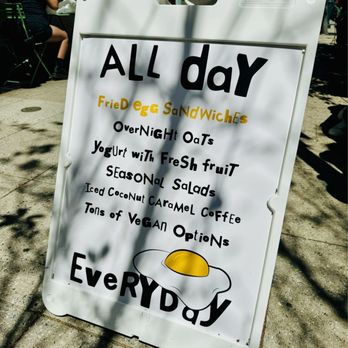 ALL daY
FrieD egg SaNDWicHEs
OverNigHt Oats
yogUrt witH FresH fruiT
SEasoNal Salads
Iced Coconut Caramel Coffee
Tons of Vegan Options
EveRYDay